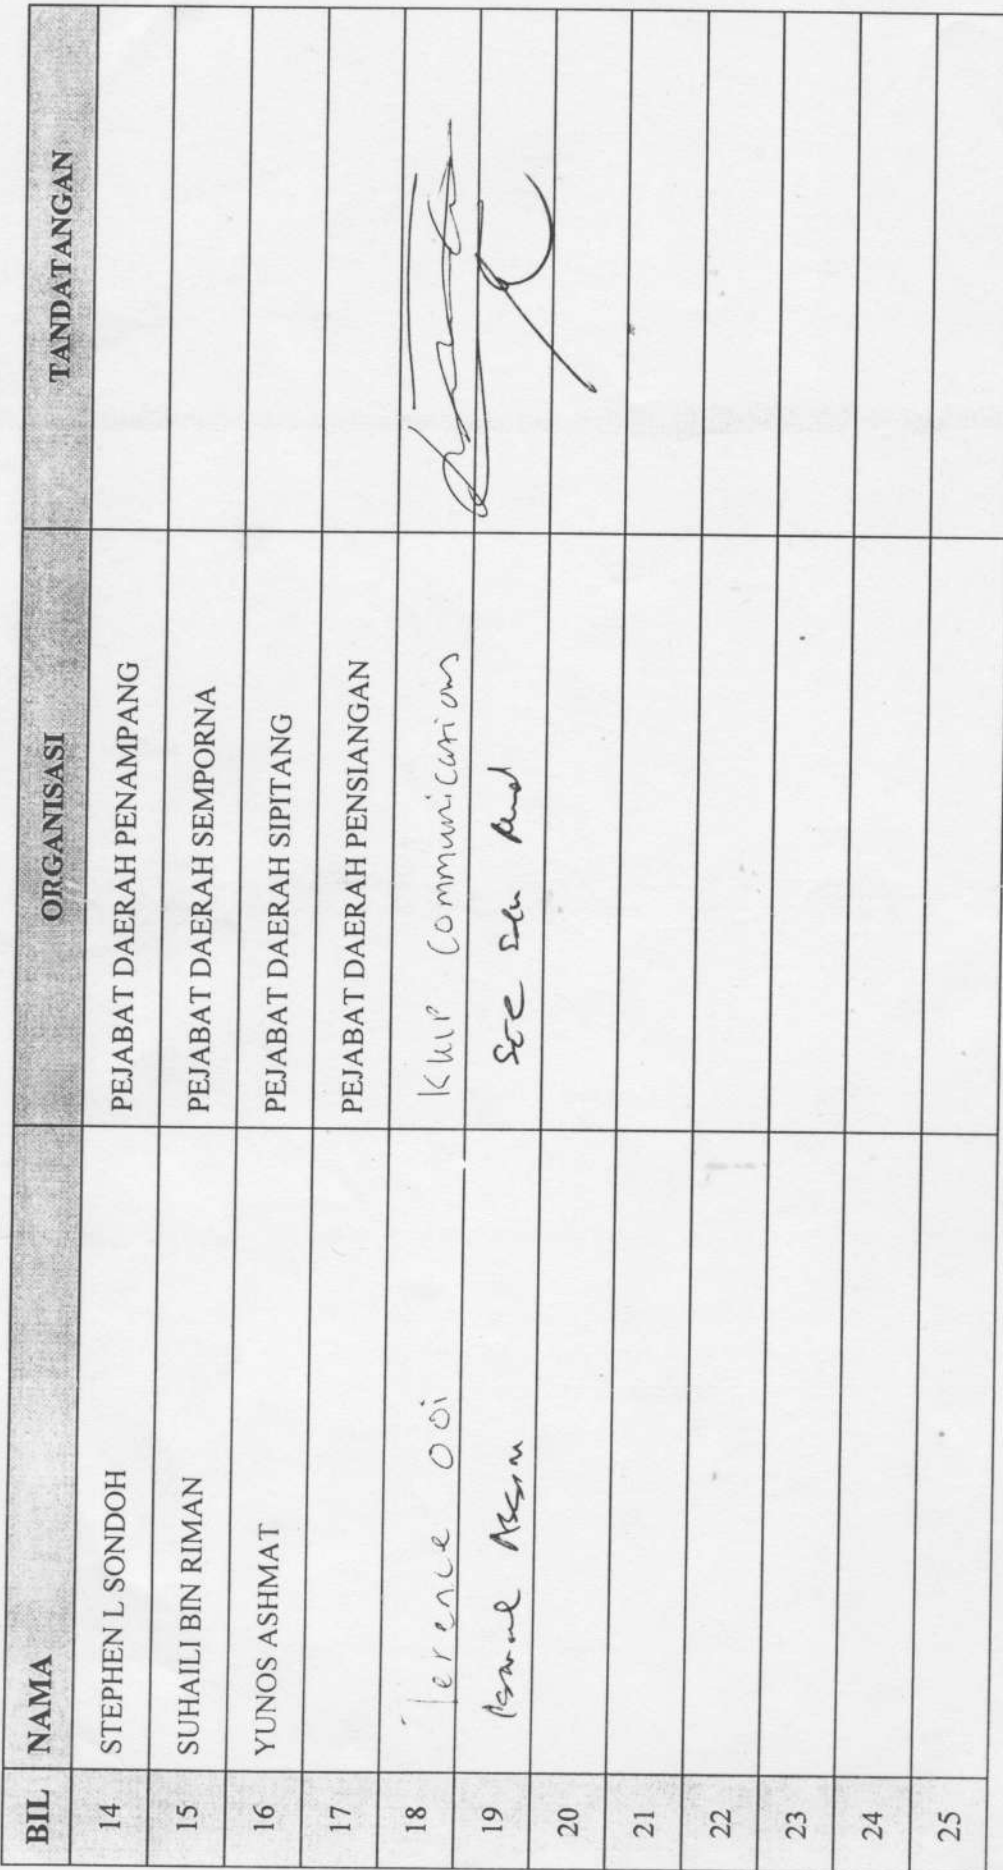 BIL NAMA ORGANISASI TANDATANGAN
14 STEPHEN L SONDOH PEJABAT DAERAH PENAMPANG
15 SUHAILI BIN RIMAN PEJABAT DAERAH SEMPORNA
16 YUNOS ASHMAT PEJABAT DAERAH SIPITANG
17 PEJABAT DAERAH PENSIANGAN
18 Terence Ooi Communications
19
20
21
22
23
24
25